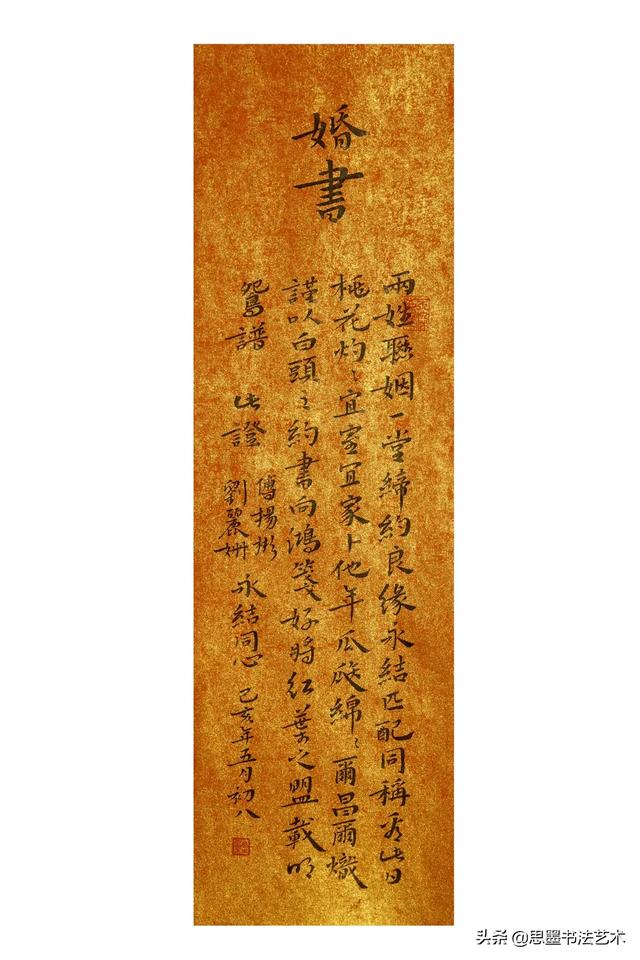 婚書
兩姓聯姻一堂締約良緣永結匹配同稱看此日
桃花灼〻宜室宜家卜他年瓜瓞綿〻爾昌爾熾
謹以白頭之約書向鴻箋好將紅葉之盟載明
鴛譜 此證
傅楊彬
劉麗姍
永結同心
己亥年五月初八
头条 @思墨书法艺术